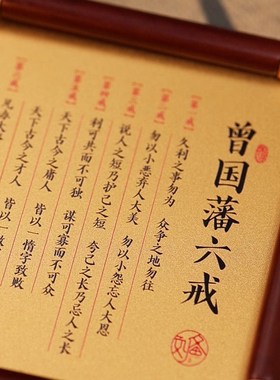 曾国藩六戒
【第一戒】
久利之事勿为 众争之地勿往
【第二戒】
勿以小恶弃人大美 勿以小怨忘人大恩
【第三戒】
说人之短乃护己之短 夸己之长乃忌人之长
【第四戒】
利可共而不可独 谋可寡而不可众
【第五戒】
天下古今之庸人 皆以一惰字致败
天下古今之才人 皆以一
【第六戒】
凡办大